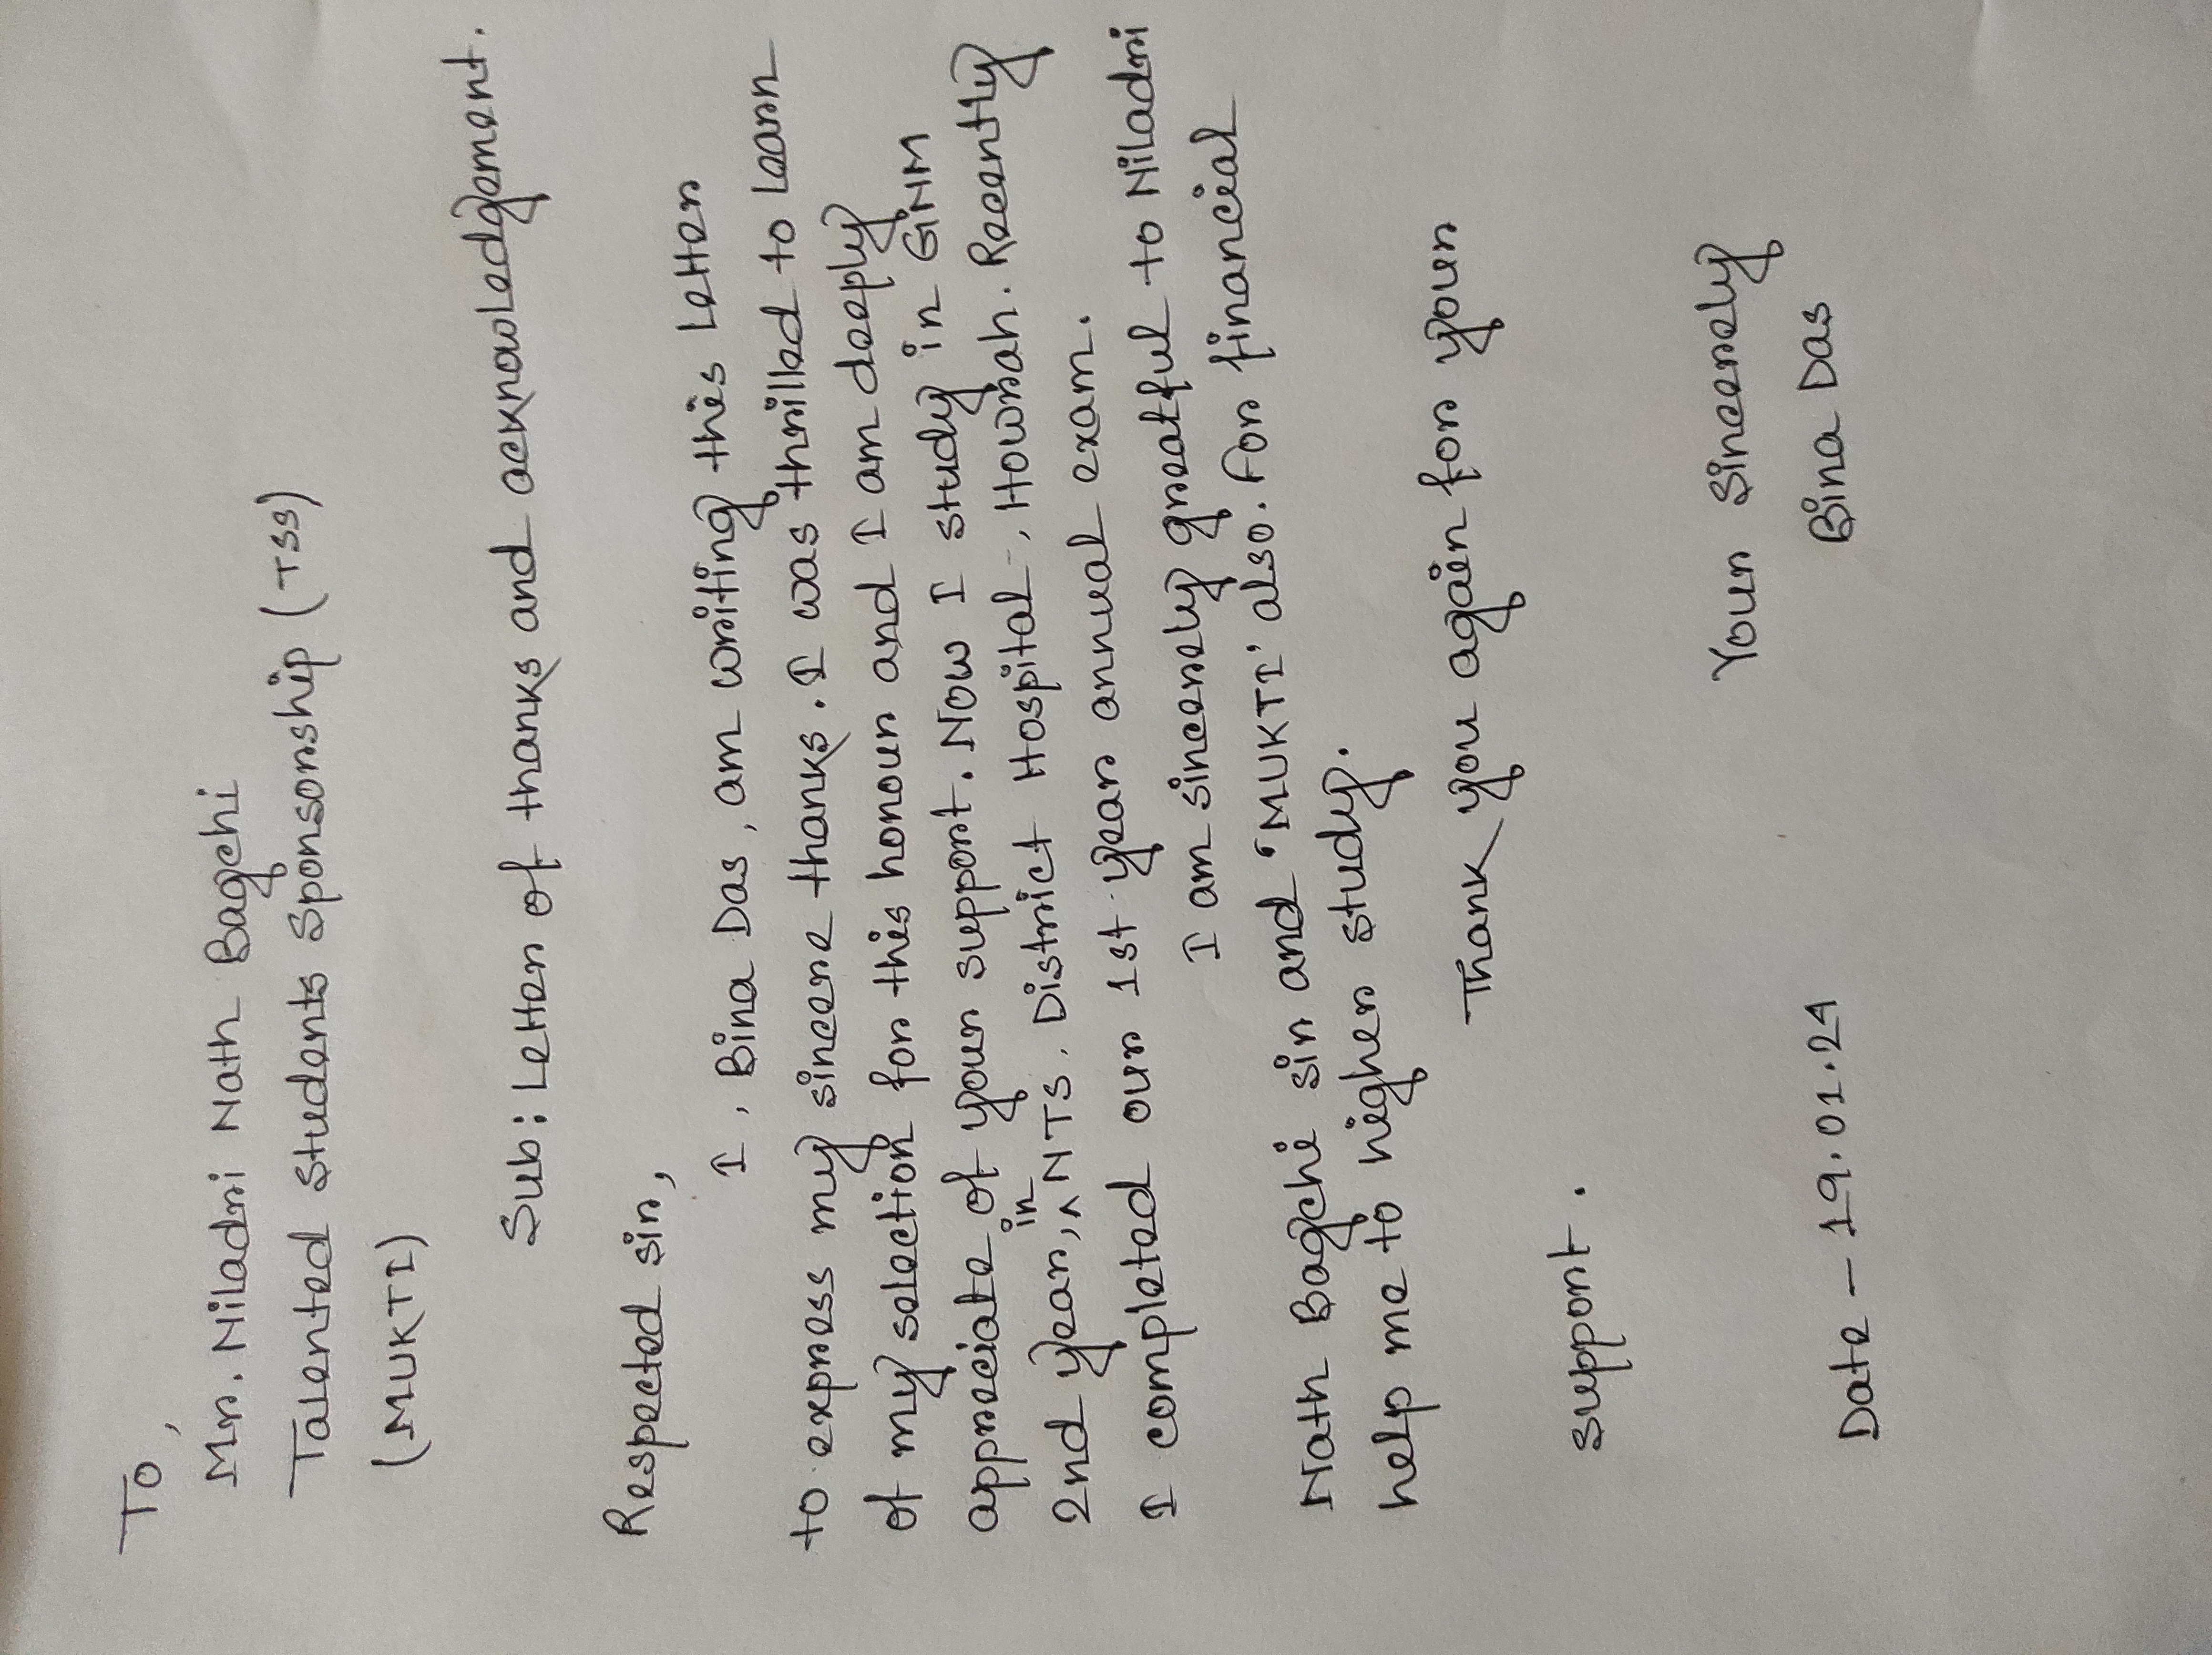 To,
Mr. Niladri Nath Bagchi
Talented Students Sponsorship (TSS)
(MUKTI)
Sub: Letter of thanks and acknowledgement.
Respected sir,
I, Bina Das, am writing this letter
to express my sincere thanks. I was thrilled to learn
of my selection for this honour and I am deeply
appreciate of your support. Now I study in GNM
2nd year, in NTS, District Hospital, Howrah. Recently
I completed our 1st year annual exam.
I am sincerely greatful to Niladri
Nath Bagchi sir and 'MUKTI' also. For financial
help me to higher study.
Thank you again for your
support.
Your sincerely
Bina Das
Date - 19.01.24